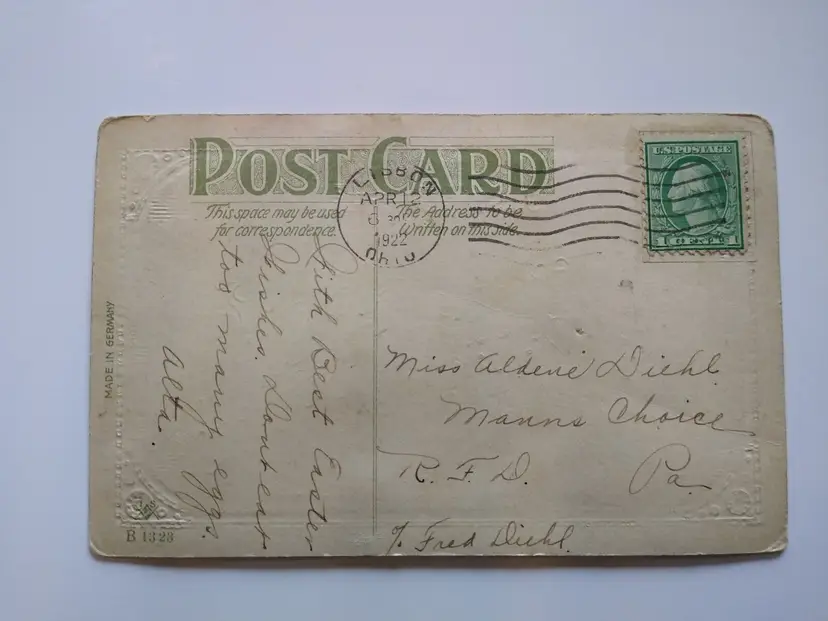 POST CARD
This space may be used
for correspondence.
The Address to be
Written on this side.
LISBON
APR 12
30
1922
OHIO
U.S. POSTAGE
1 CENT 1
With Best Easter
Wishes. Dont eat
too many eggs.
Alta.
Miss Aldene Diehl
Manns Choice
R. F. D. Pa.
% Fred Diehl.
MADE IN GERMANY
B 1323